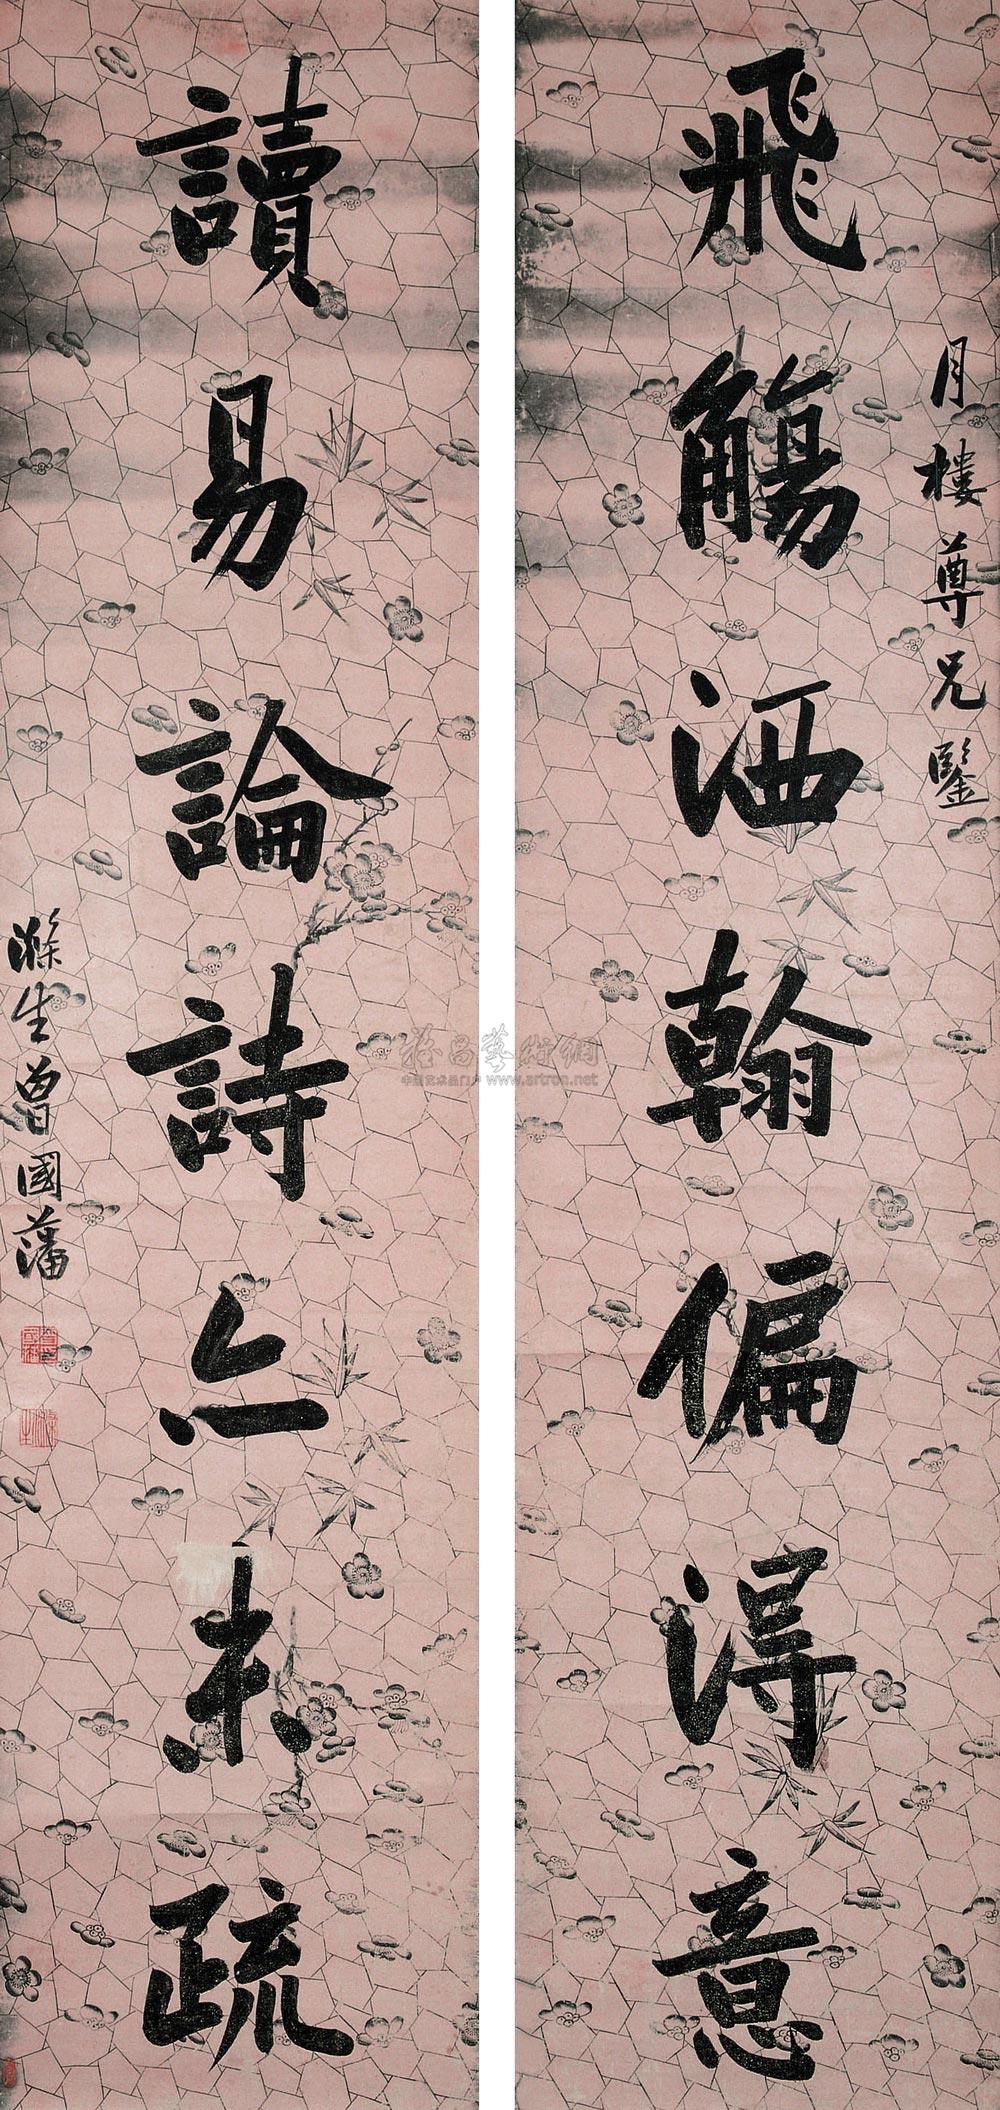 月樓尊兄鑒
飛觴洒翰偏得意
讀易論詩亦未疏
滌生曾國藩
雅昌藝術網
中国艺术品门户 www.artron.net